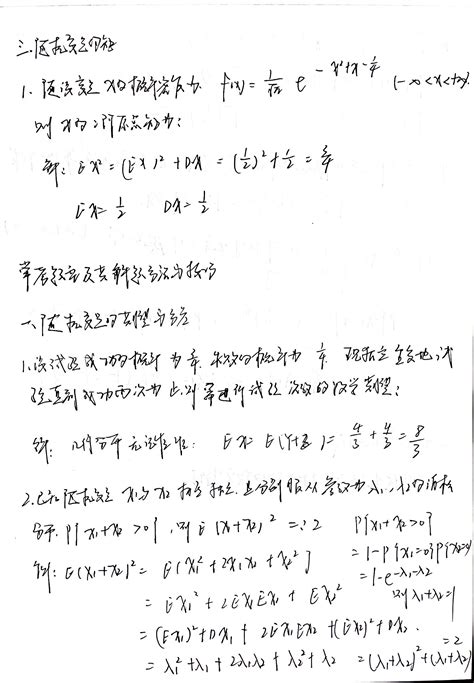 三、随机变量的矩
1. 随机变量 X的概率密度为 f(x) = 1/√π e^{-x²+x-1/4} (-∞<x<+∞)
则 X的二阶原点矩为:
解: EX² = (EX)² + DX = (1/2)² + 1/2 = 3/4
EX = 1/2 DX = 1/2
常考题型及其解题方法与技巧
一、随机变量的期望与方差
1. 设试验成功的概率为 3/4, 失败的概率为 1/4, 现独立重复地试
验直到成功两次为止, 则 进行试验次数的数学期望:
解: 几何分布 无记忆性: EX = E(Y+Z) = 4/3 + 4/3 = 8/3
2. 已知随机变量 X₁与X₂相互独立, 且分别服从参数为 λ₁, λ₂的泊松
分布. P{X₁+X₂>0}, 则 E(X₁+X₂)² =? 2 P{X₁+X₂>0}
解: E(X₁+X₂)² = E(X₁² + 2X₁X₂ + X₂²] = 1-P{X₁=0}P{X₂=0}
= EX₁² + 2EX₁EX₂ + EX₂² = 1-e-λ₁-λ₂
则 λ₁+λ₂=1
= (EX₁)² + DX₁ + 2EX₁EX₂ + (EX₂)² + DX₂.
= λ₁² + λ₁ + 2λ₁λ₂ + λ₂² + λ₂ = (λ₁+λ₂)² + (λ₁+λ₂)
=2